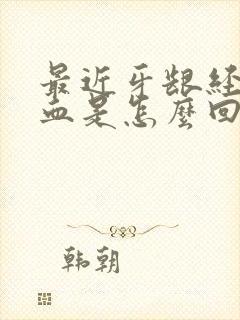 最近牙龈经
血是怎麽回
韩朝